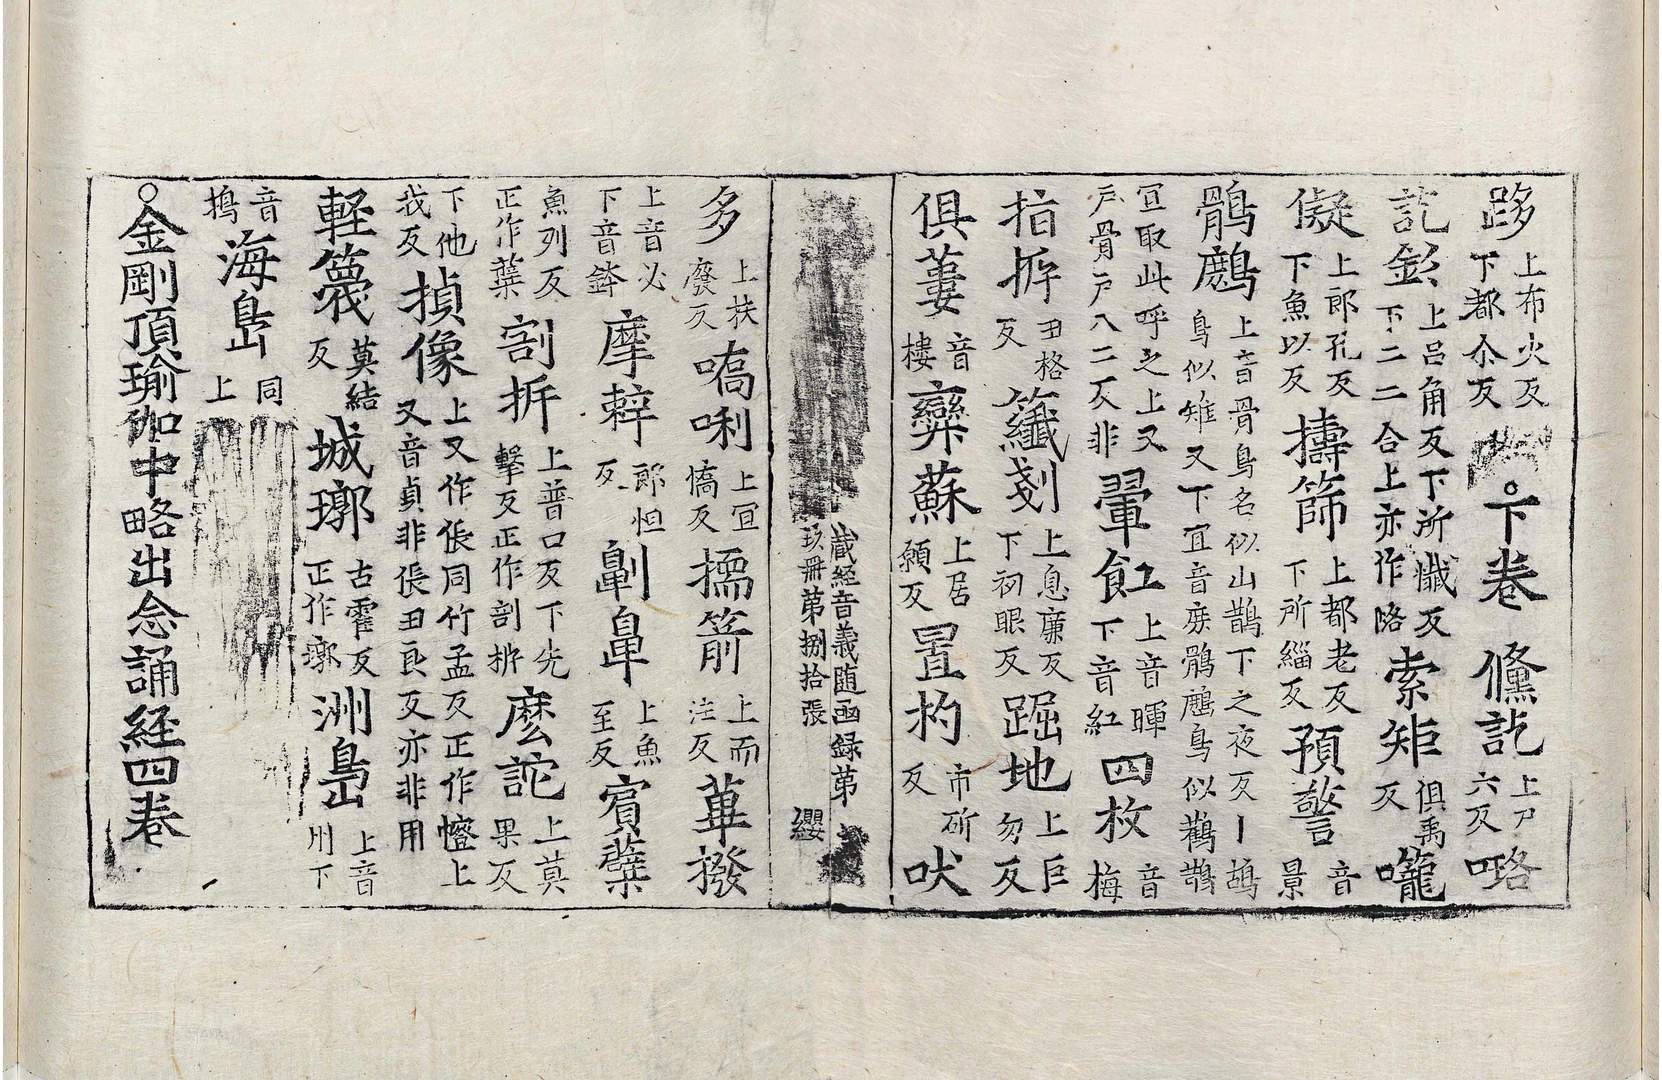 跢上布火反下都尒反 ○下卷 儵訖上尸六反 咯
訖鈠上吕角反下所懺反下二二合上亦作略 索矩俱禹反 嚨
儗上郎孔反下魚以反 擣篩上都老反下所緇反 預警音景
鶻鷓上音骨鳥名似山鵲下之夜反丨鴣鳥似雉又下宜音㢋鶻鷓鳥似鸛鵲
宜取此呼之上又戶骨戶八二反非 翬飳上音暉下音紅 四枚音梅
指拆丑格反 籤剗上息廉反下初眼反 踞地上巨勿反
俱蔞音樓 彝蘇上居願反 置杓市斫反 吠
藏经音義随函録第玖冊第捌拾張 纓
多上扶廢反 嗚唎上宜憍反 擩箭上而注反 蓽撥
上音必下音鉢 摩䔖郎怛反 劓鼻上魚至反 賓蘗
魚列反正作蘖 割拆上普口反下先擊反正作剖㭊 麼詑上莫果反
下他我反 揁像上又作倀同竹孟反正作幰上又音貞非倀丑良反亦非用
軽篾莫結反 城墎古霍反正作墎 洲㠀上音州下
音擣 海㠀同上
○金剛頂瑜伽中略出念誦経四卷